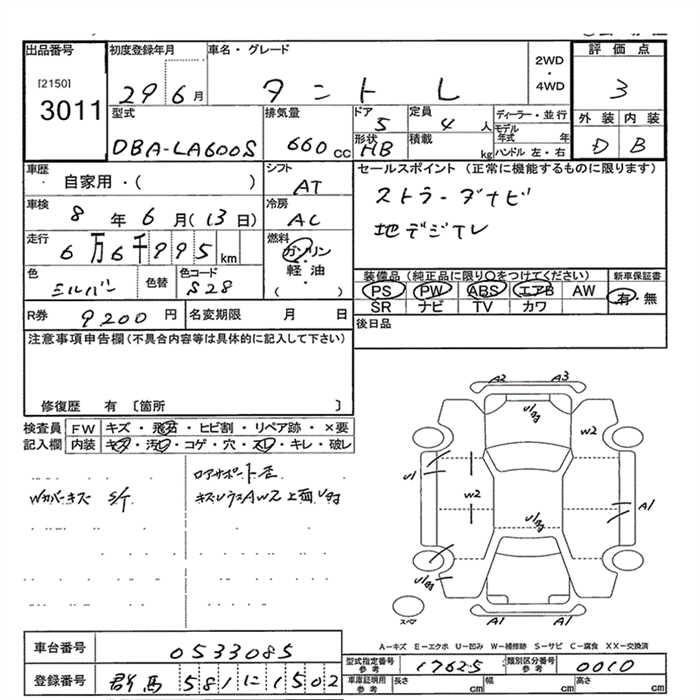 出品番号 初度登録年月 車名・グレード 評価点
[2150]
3011
29 6月 タント L 2WD・4WD 3
型式 排気量 ドア 定員 ディーラー・並行 外装 内装
DBA-LA600S 660cc 5 4人 モデル年式 年 D B
形状 積載 ハンドル 左・右
HB kg
車歴 自家用・( ) シフト AT
セールスポイント (正常に機能するものに限ります)
車検 8年6月(13日) 冷房 AC
ストラーダナビ
地デジTV
走行 6万6千995km 燃料 ガソリン・軽油・( )
色 シルバー 色替 色コード S28
装備品(純正品に限り○をつけてください) 新車保証書
PS PW ABS エアB AW 有・無
SR ナビ TV カワ
R券 9200円 名変期限 月 日
後日品
注意事項申告欄(不具合内容等は具体的に記入して下さい)
修復歴 有〔箇所 〕
検査員記入欄 FW キズ・飛石・ヒビ割・リペア跡・×要
内装 キズ・汚レ・コゲ・穴・スレ・キレ・破レ
Wカバーキズ S/T
ロアサポート歪
A2 A3
UIロロ
W2
U1
W2
A1
A1 A1
スペア
A-キズ E-エクボ U-凹み W-補修跡 S-サビ C-腐食 XX-交換済
車台番号 0533085
型式指定番号 参考 17625 類別区分番号 参考 0010
登録番号 群馬 581に1502
車庫証明用 参考 長さ cm 幅 cm 高さ cm